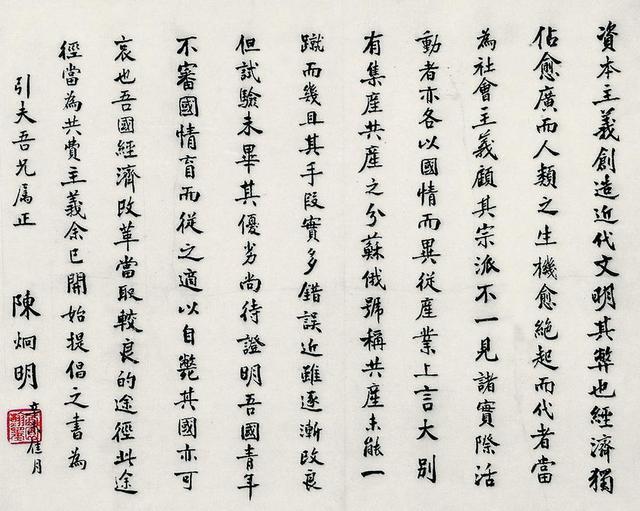 資本主義創造近代文明其弊也經濟獨
佔愈廣而人類之生機愈絕起而代者當
為社會主義顧其宗派不一見諸實際活
動者亦各以國情而異從產業上言大別
有集產共產之分蘇俄號稱共產未能一
蹴而幾且其手段實多錯誤近雖逐漸改良
但試驗未畢其優劣尚待證明吾國青年
不審國情盲而從之適以自斃其國亦可
哀也吾國經濟改革當取較良的途徑此途
徑當為共費主義余已開始提倡之書為
引夫吾兄屬正
陳炯明
辛未佳月